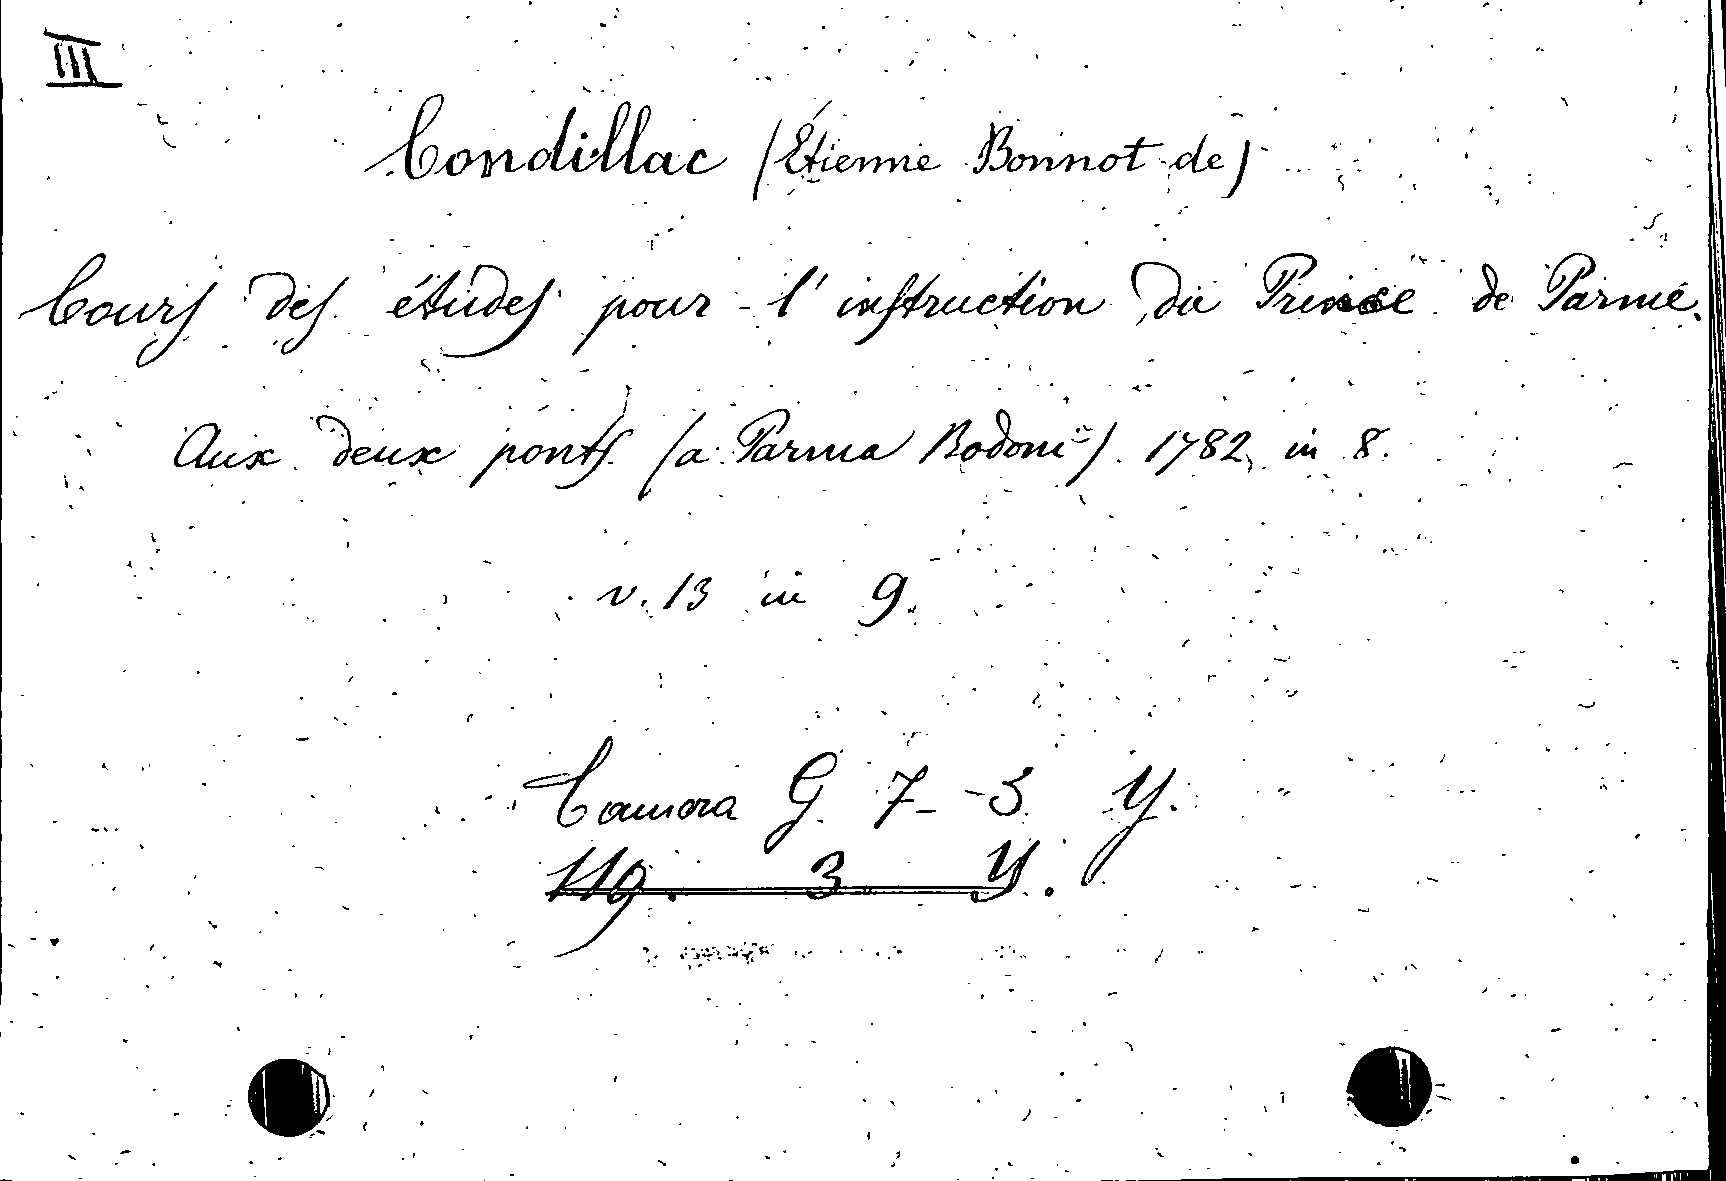 III
Condillac (Étienne Bonnot de)
Cours des études pour l'instruction du Prince de Parme.
Aux deux ponts (a Parma Bodoni) 1782 in 8.
v. 13 in 9.
Camera G. 7 - 3 Y.
119. 3. Y.